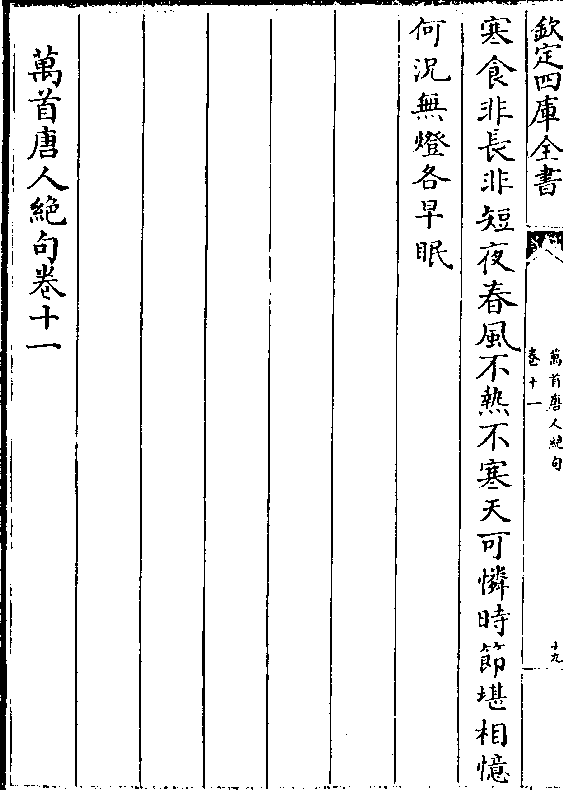 欽定四庫全書
萬首唐人絶句
卷十一
十九
寒食非長非短夜春風不熱不寒天可憐時節堪相憶
何況無燈各早眠
萬首唐人絶句卷十一